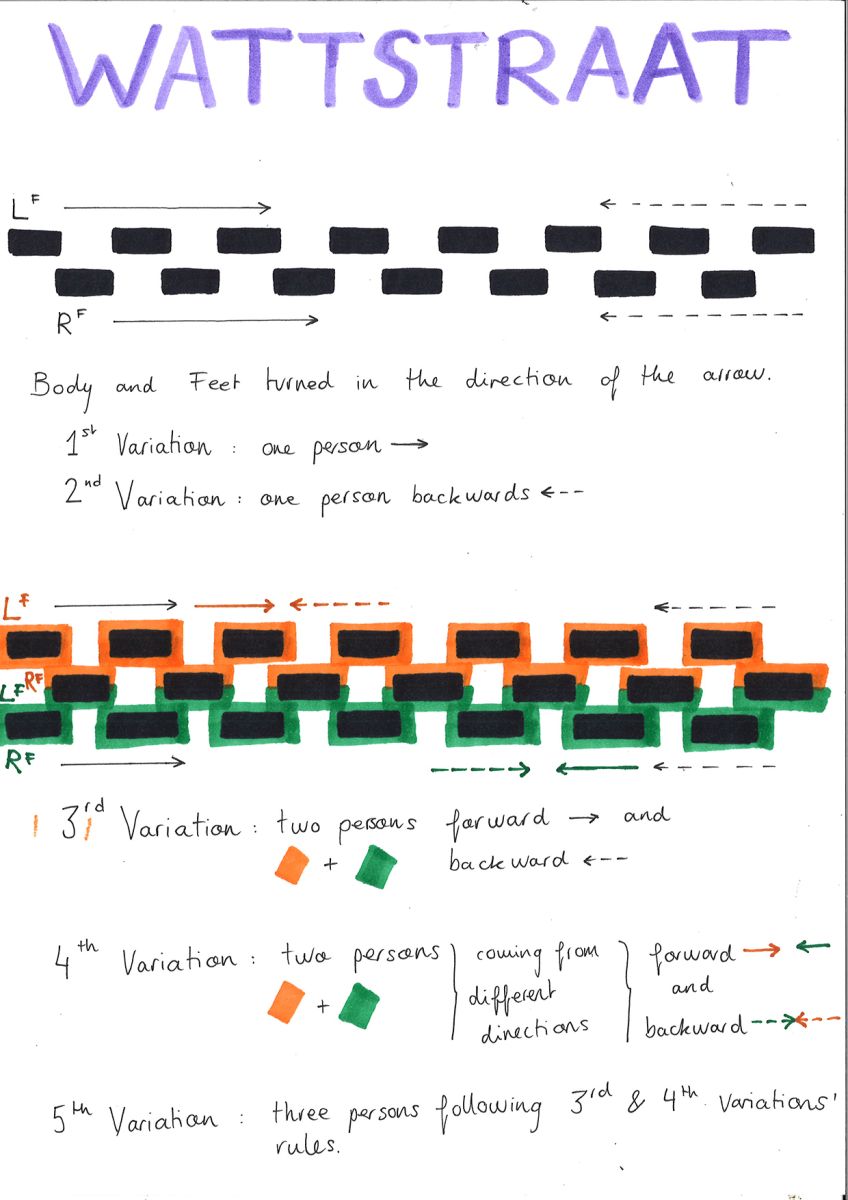 WATTSTRAAT
LF
RF
Body and Feet turned in the direction of the arrow.
1st Variation : one person →
2nd Variation : one person backwards ←--
LF
LF RF
RF
3rd Variation : two persons forward → and
+ backward ←--
4th Variation : two persons } coming from } forward → ←
+ different and
directions backward --→ ←--
5th Variation : three persons following 3rd & 4th variations'
rules.